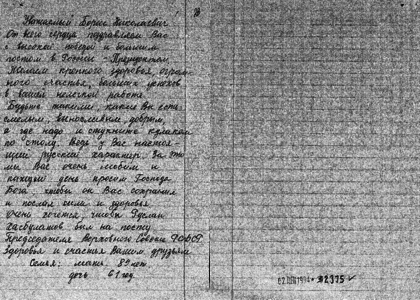 Уважаемый Борис Николаевич
От всего сердца поздравляем Вас
с высокой победой и большим
постом в России - Президентом
Желаем крепного здоровья, огром-
ного счастья, больших успехов
в вашей нелёгкой работе.
Будьте такими какие Вы есть
смелым, выносливым, добрым,
а где надо и стукните кулаком
по столу. Ведь у Вас настоя-
щий русский характер. За это
мы Вас очень любим и
каждый день просим Господа
Бога чтобы он Вас сохранил
и послал силы и здоровья
Очень хочется, чтобы Руслан
Хасбулатов был на посту
Председателя Верховного Совета РСФСР
Здоровья и счастья Вашим друзьям
Семья: мать 89 лет
дочь 61 год
1991 * 32375